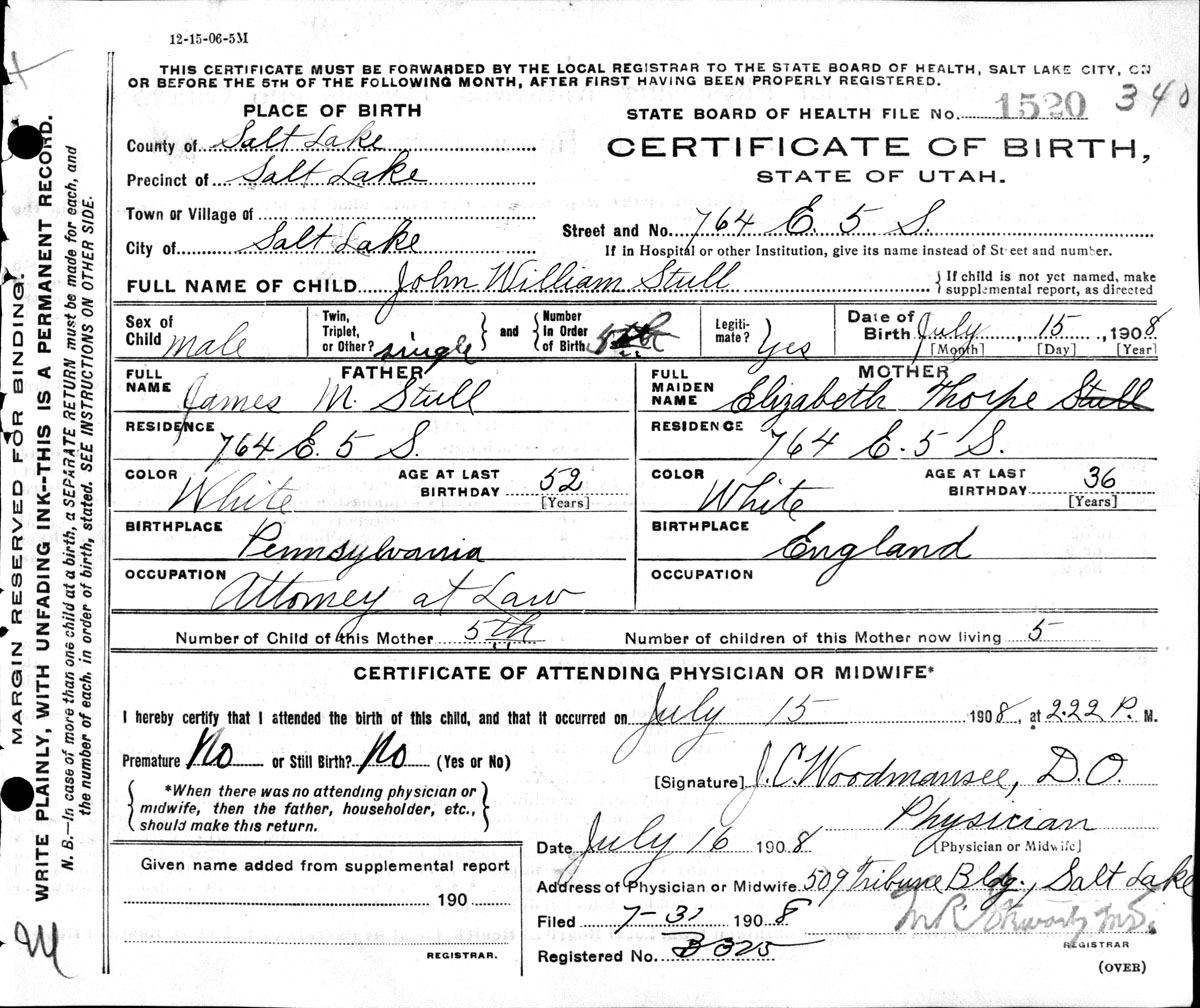 12-15-06-5M
THIS CERTIFICATE MUST BE FORWARDED BY THE LOCAL REGISTRAR TO THE STATE BOARD OF HEALTH, SALT LAKE CITY, ON
OR BEFORE THE 5TH OF THE FOLLOWING MONTH, AFTER FIRST HAVING BEEN PROPERLY REGISTERED.
340
PLACE OF BIRTH
STATE BOARD OF HEALTH FILE No. 1520
County of Salt Lake
CERTIFICATE OF BIRTH,
Precinct of Salt Lake
STATE OF UTAH.
Town or Village of
Street and No. 764 E. 5 S.
City of Salt Lake
If in Hospital or other Institution, give its name instead of Street and number.
FULL NAME OF CHILD John William Stull
If child is not yet named, make
supplemental report, as directed
Sex of Child male
Twin, Triplet, or Other? single
and
Number In Order of Birth 5th
Legiti- mate? Yes
Date of Birth July 15, 1908
[Month] [Day] [Year]
FATHER
FULL NAME James M. Stull
RESIDENCE 764 E. 5 S.
COLOR White
AGE AT LAST BIRTHDAY 52
[Years]
BIRTHPLACE Pennsylvania
OCCUPATION Attorney at Law
MOTHER
FULL MAIDEN NAME Elizabeth Thorpe Stull
RESIDENCE 764 E. 5 S.
COLOR White
AGE AT LAST BIRTHDAY 36
[Years]
BIRTHPLACE England
OCCUPATION
Number of Child of this Mother 5th
Number of children of this Mother now living 5
CERTIFICATE OF ATTENDING PHYSICIAN OR MIDWIFE*
I hereby certify that I attended the birth of this child, and that it occurred on July 15 1908, at 2.22 P. M.
Premature No or Still Birth? No (Yes or No)
*When there was no attending physician or
midwife, then the father, householder, etc.,
should make this return.
[Signature] J. C. Woodmansee, D.O.
Physician
[Physician or Midwife]
Date July 16 1908
Given name added from supplemental report
190
REGISTRAR.
Address of Physician or Midwife 509 Tribune Bldg., Salt Lake
Filed 7-31 1908
Registered No. B 325
REGISTRAR
(OVER)
MARGIN RESERVED FOR BINDING.
WRITE PLAINLY, WITH UNFADING INK--THIS IS A PERMANENT RECORD.
N. B.—In case of more than one child at a birth, a SEPARATE RETURN must be made for each, and
the number of each, in order of birth, stated. SEE INSTRUCTIONS ON OTHER SIDE.